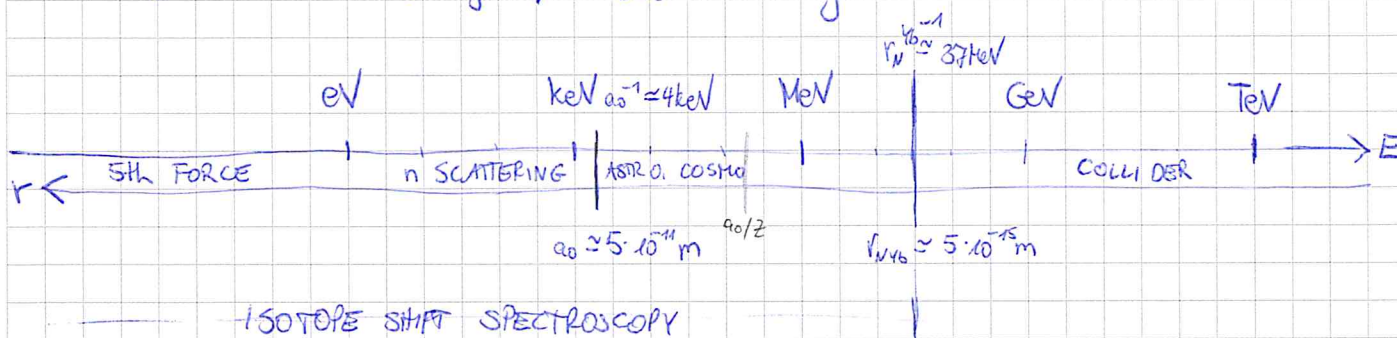 r_N^Yb⁻¹ ≃ 37MeV
eV keV a₀⁻¹ ≃ 4keV MeV GeV TeV
E
5th FORCE n SCATTERING ASTRO. COSMO COLLIDER
r
a₀ ≃ 5·10⁻¹¹m a₀/Z r_NYb ≃ 5·10⁻¹⁵m
ISOTOPE SHIFT SPECTROSCOPY